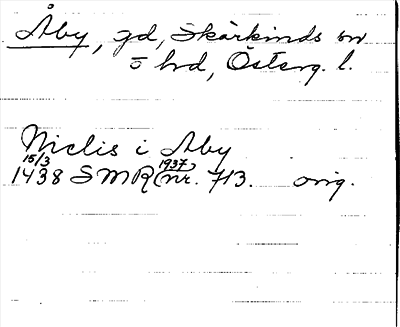 Åby, gd, Skärkinds sn
o hd, Österg. l.
Niclis i Aby
15/3 1937
1438 SMR (nr. 713. orig.